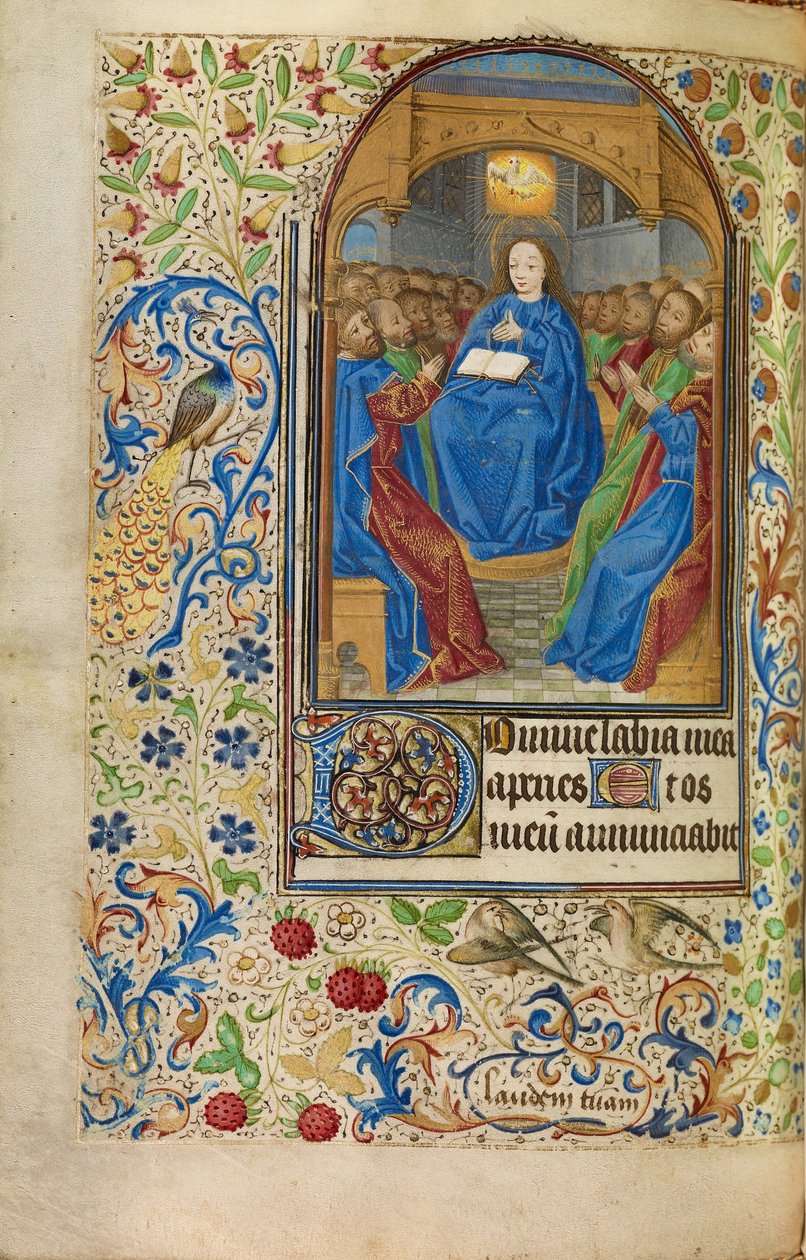 Domine labia mea
apries Et os
meū annunciabit
laudem tuam